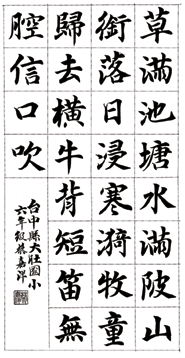 草滿池塘水滿陂山
銜落日浸寒漪牧童
歸去橫牛背短笛無
腔信口吹
台中縣大壯國小
六年級蔡嘉